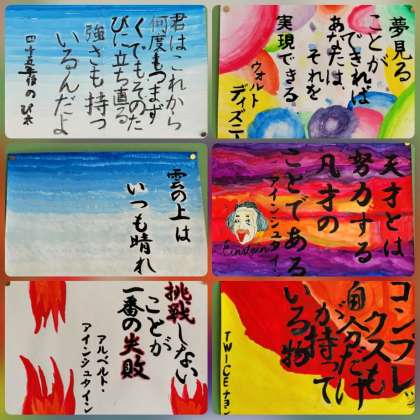 君はこれから
何度もつまず
く。でもそのた
びに立ち直る
強さも持って
いるんだよ
のび太
夢見る
ことが
できれば
あなたは、
それを
実現できる
ウォルト
ディズニー
雲の上は
いつも晴れ
天才とは
努力する
凡才の
ことである
アインシュタイン
Einstein
挑戦しない
ことが
一番の失敗
アルベルト・
アインシュタイン
コンプレッ
クスも
自分だけ
が持って
いる物
TWICE